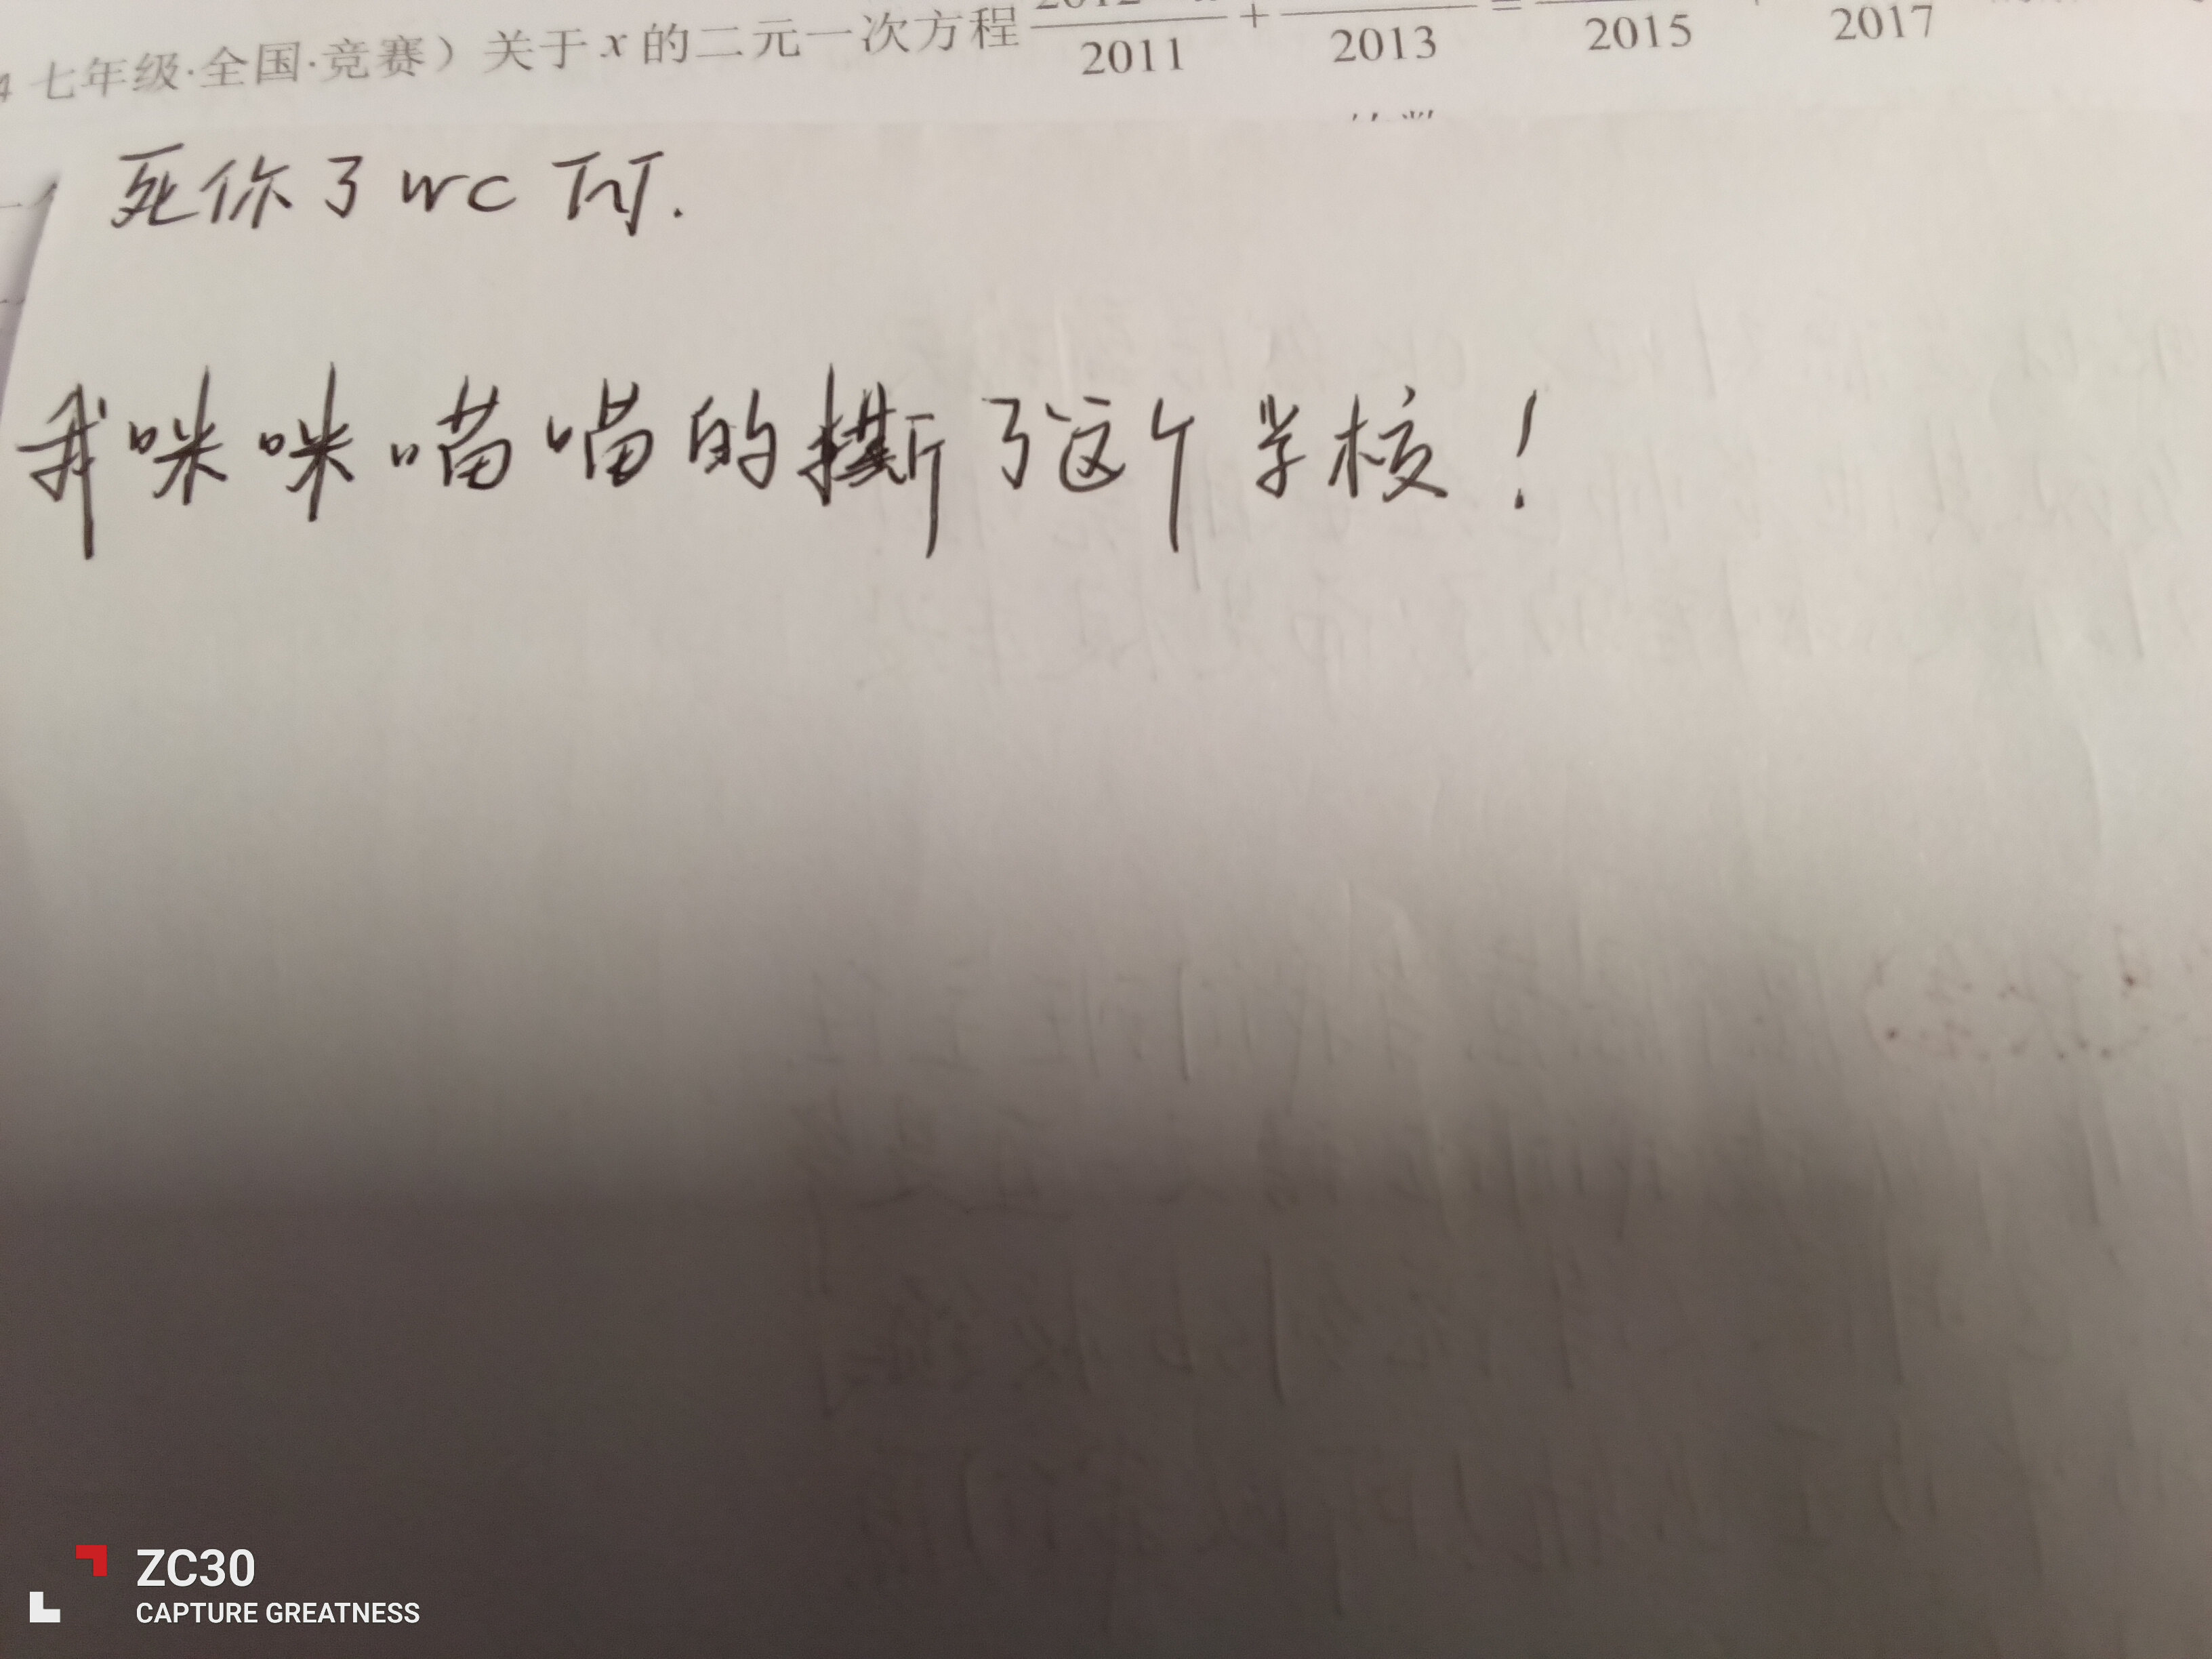 七年级·全国·竞赛）关于x的二元一次方程 2012 / 2011 + / 2013 = / 2015 / 2017
死你了 wc
我咪咪喵喵的撕了这个学校！
ZC30
CAPTURE GREATNESS